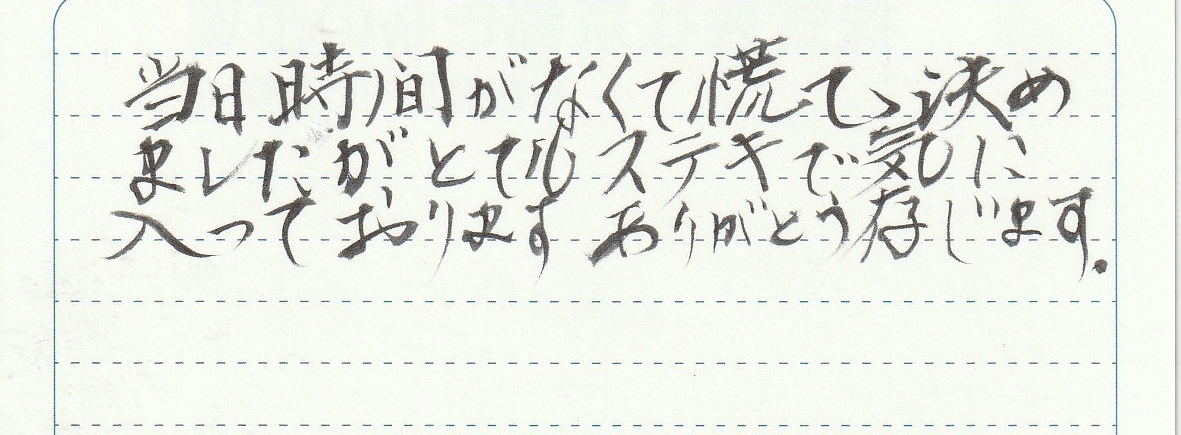 当日時間がなくて慌てて、決め
ましたがとてもステキで気に
入っております ありがとう存じます.